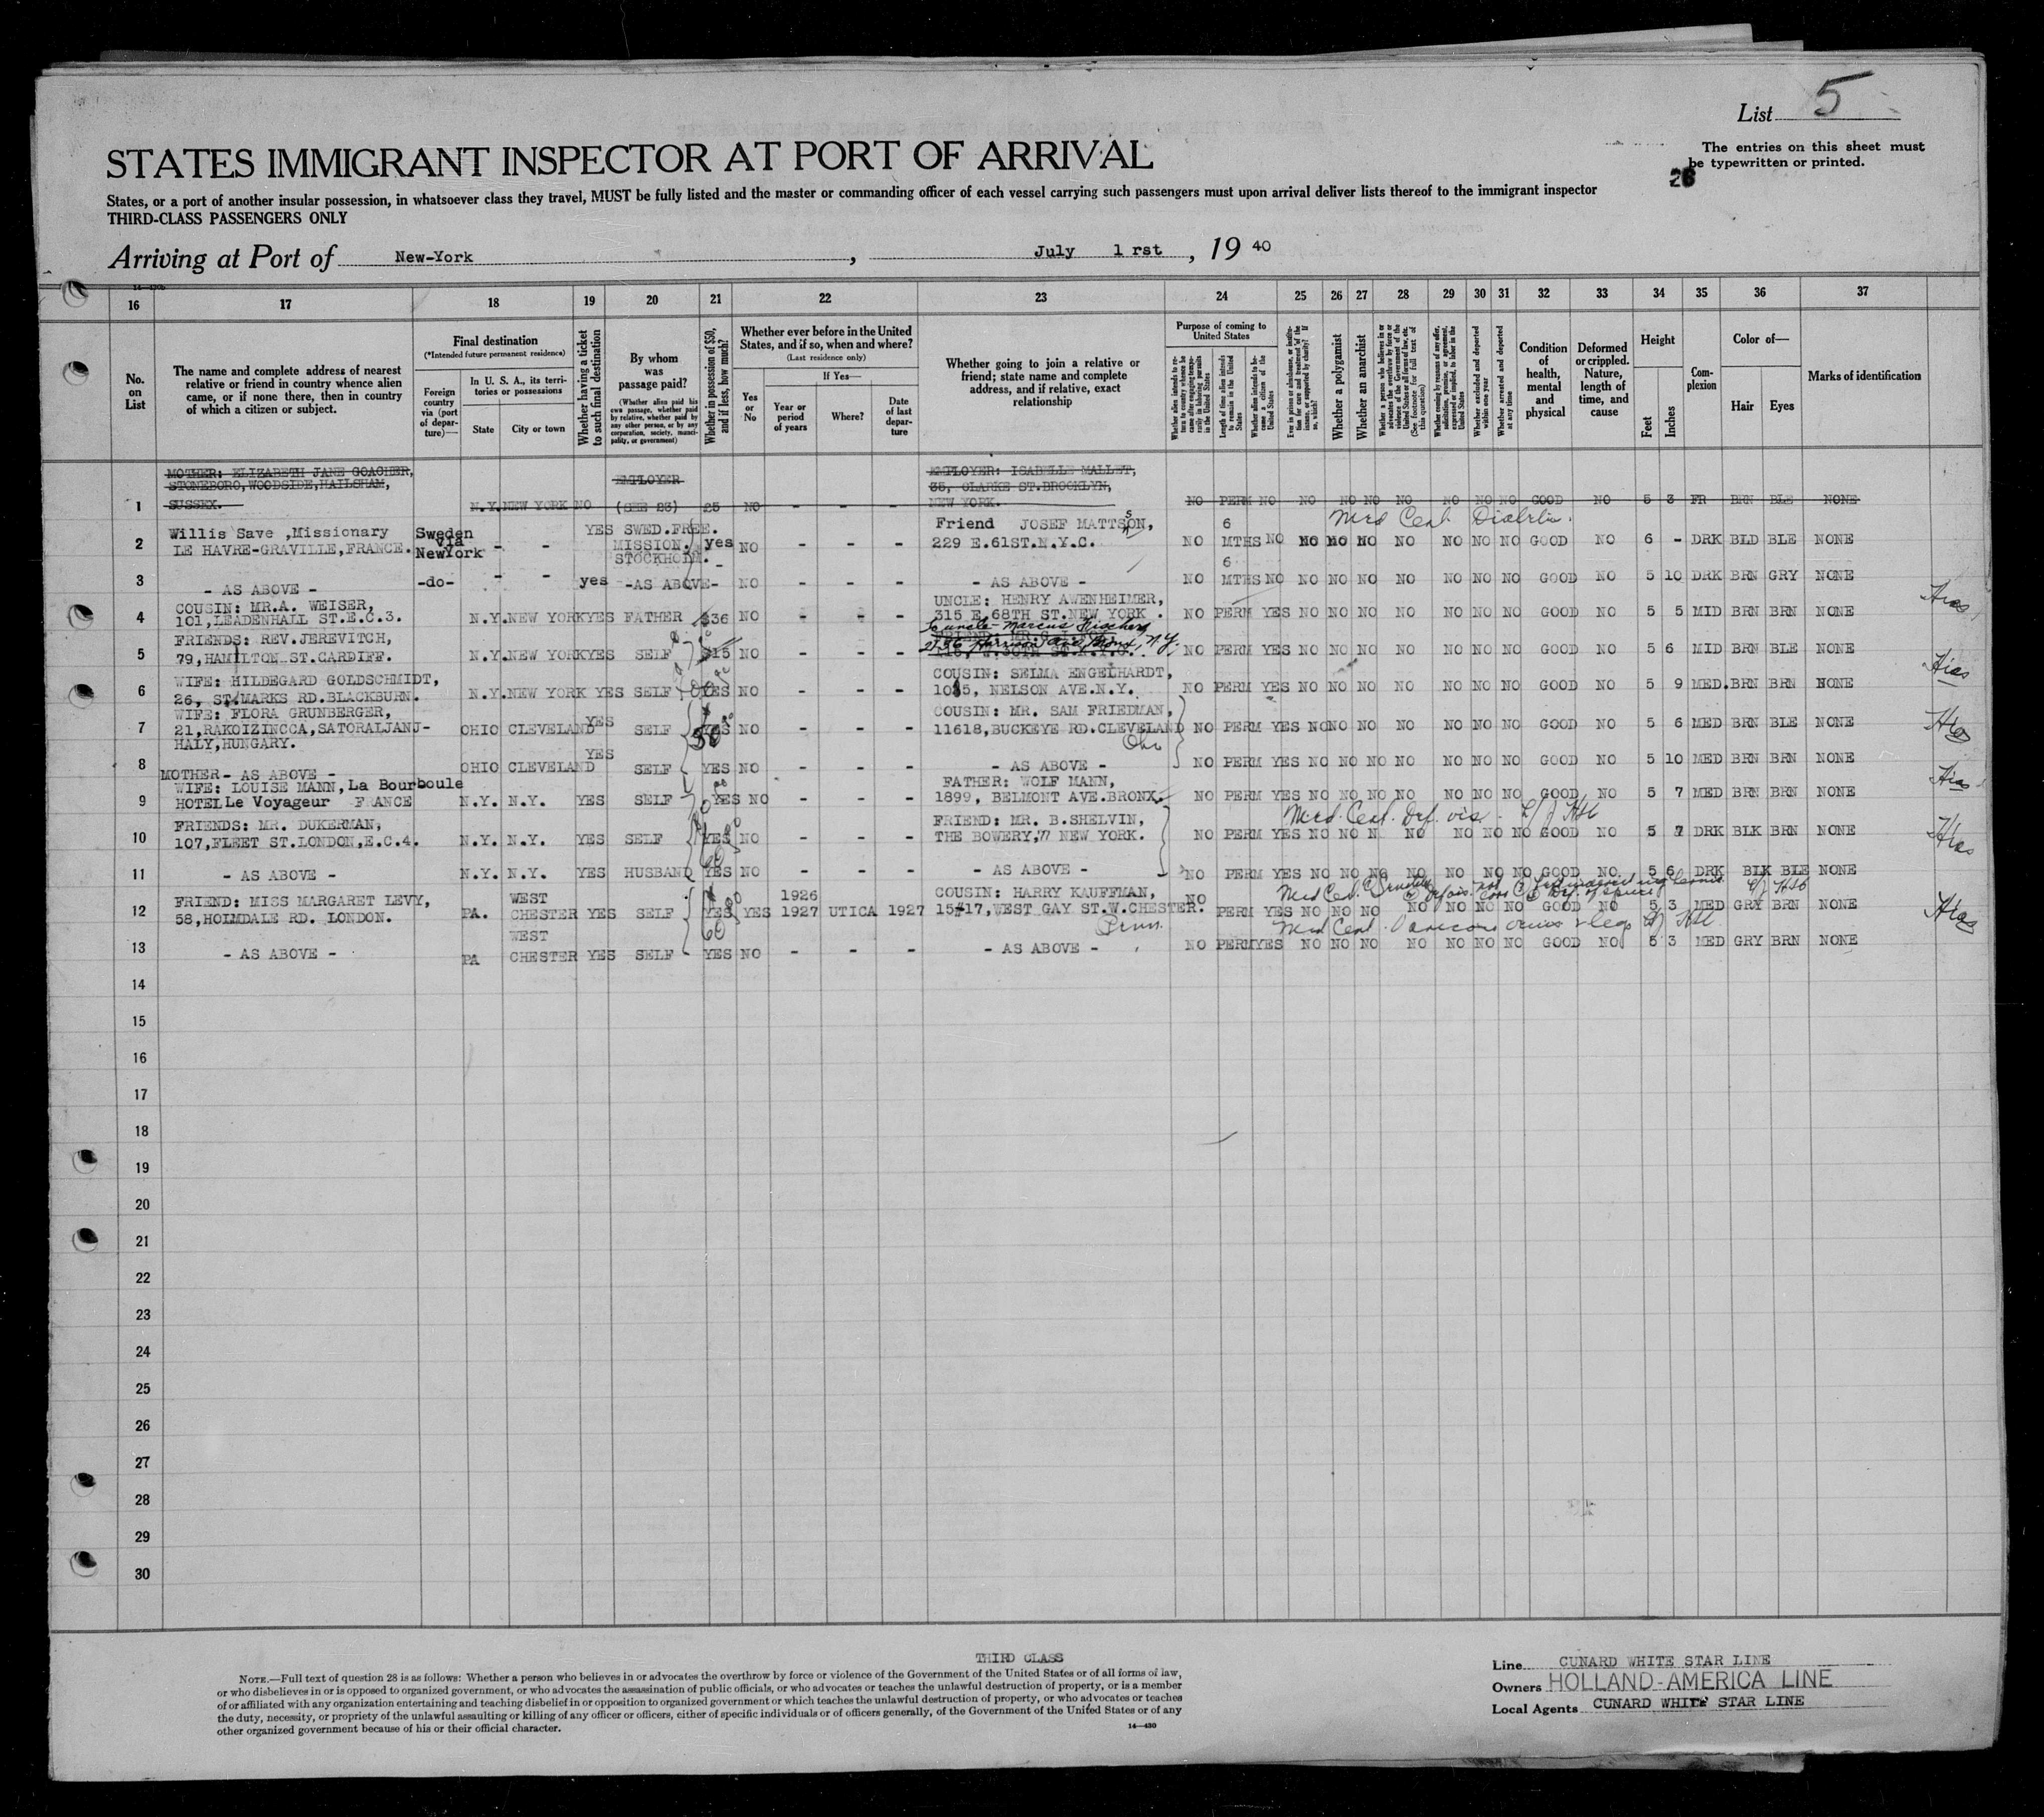 List 5
The entries on this sheet must
be typewritten or printed.
26
STATES IMMIGRANT INSPECTOR AT PORT OF ARRIVAL
States, or a port of another insular possession, in whatsoever class they travel, MUST be fully listed and the master or commanding officer of each vessel carrying such passengers must upon arrival deliver lists thereof to the immigrant inspector
THIRD-CLASS PASSENGERS ONLY
Arriving at Port of New-York, July 1 rst, 19 40
16 17 18 19 20 21 22 23 24 25 26 27 28 29 30 31 32 33 34 35 36 37
No. on List
The name and complete address of nearest relative or friend in country whence alien came, or if none there, then in country of which a citizen or subject.
Final destination
(*Intended future permanent residence)
Foreign country via (port of departure)—
In U. S. A., its territories or possessions
State
City or town
Whether having a ticket to such final destination
By whom was passage paid?
(Whether alien paid his own passage, whether paid by relative, whether paid by any other person, or by any corporation, society, municipality, or government)
Whether in possession of $50, and if less, how much?
Whether ever before in the United States, and if so, when and where?
(Last residence only)
Yes or No
If Yes—
Year or period of years
Where?
Date of last departure
Whether going to join a relative or friend; state name and complete address, and if relative, exact relationship
Purpose of coming to United States
Whether alien intends to return to country whence he came after engaging temporarily in laboring pursuits in the United States
Length of time alien intends to remain in the United States
Whether alien intends to become a citizen of the United States
Ever in prison or almshouse, or institution for care and treatment of the insane, or supported by charity? If so, which?
Whether a polygamist
Whether an anarchist
Whether a person who believes in or advocates the overthrow by force or violence of the Government of the United States or all forms of law, etc. (See footnote for full text of this question)
Whether coming by reasons of any offer, solicitation, promise, or agreement, expressed or implied, to labor in the United States
Whether excluded and deported within one year
Whether arrested and deported at any time
Condition of health, mental and physical
Deformed or crippled. Nature, length of time, and cause
Height
Feet
Inches
Complexion
Color of—
Hair
Eyes
Marks of identification
MOTHER: ELIZABETH JANE GOACHER,
STONEBORO,WOODSIDE,HAILSHAM,
SUSSEX.
1 N.Y. NEW YORK NO EMPLOYER (SEE 23) 25 NO - - - EMPLOYER: ISABELLE MALLET,
35, CLARKE ST.BROOKLYN,
NEW YORK.
NO PERM NO NO NO NO NO NO NO NO GOOD NO 5 3 FR BRN BLE NONE
Med Cert Diabetes.
2 Willis Save ,Missionary
LE HAVRE-GRAVILLE,FRANCE.
Sweden
via
NewYork
- - YES SWED.FREE.
MISSION.
STOCKHOLM.
yes NO - - - Friend JOSEF MATTSON,
229 E.61ST.N.Y.C.
NO 6 MTHS NO NO NO NO NO NO NO NO GOOD NO 6 - DRK BLD BLE NONE
3 - AS ABOVE - -do- - - yes -AS ABOVE- - NO - - - - AS ABOVE -
NO 6 MTHS NO NO NO NO NO NO NO NO GOOD NO 5 10 DRK BRN GRY NONE
4 COUSIN: MR.A. WEISER,
101,LEADENHALL ST.E.C.3.
N.Y. NEW YORK YES FATHER $36 NO - - - UNCLE: HENRY AWENHEIMER,
315 E.68TH ST.NEW YORK .
NO PERM YES NO NO NO NO NO NO NO GOOD NO 5 5 MID BRN BRN NONE Hias
5 FRIENDS: REV.JEREVITCH,
79,HAMILTON ST.CARDIFF.
N.Y. NEW YORK YES SELF $15 NO - - - uncle - Marcus
N.Y.
NO PERM YES NO NO NO NO NO NO NO GOOD NO 5 6 MID BRN BLE NONE
6 WIFE: HILDEGARD GOLDSCHMIDT,
26, ST.MARKS RD.BLACKBURN.
N.Y. NEW YORK YES SELF YES NO - - - COUSIN: SELMA ENGELHARDT,
NELSON AVE.N.Y.
NO PERM YES NO NO NO NO NO NO NO GOOD NO 5 9 MED. BRN BRN NONE Hias
7 WIFE: FLORA GRUNBERGER,
21,RAKOIZINCCA,SATORALJANJ-
HALY,HUNGARY.
OHIO CLEVELAND YES SELF YES NO - - - COUSIN: MR. SAM FRIEDMAN,
11618,BUCKEYE RD.CLEVELAND
Ohio
NO PERM YES NO NO NO NO NO NO NO GOOD NO 5 6 MED BRN BLE NONE Hias
8 MOTHER- AS ABOVE - OHIO CLEVELAND YES SELF YES NO - - - - AS ABOVE -
NO PERM YES NO NO NO NO NO NO NO GOOD NO 5 10 MED BRN BRN NONE
9 WIFE: LOUISE MANN, La Bourboule
HOTEL Le Voyageur FRANCE
N.Y. N.Y. YES SELF YES NO - - - FATHER: WOLF MANN,
1899, BELMONT AVE.BRONX.
NO PERM YES NO NO NO NO NO NO NO GOOD NO 5 7 MED BRN BRN NONE Hias
Med. Cert. Def. vis.
10 FRIENDS: MR. DUKERMAN,
107,FLEET ST.LONDON,E.C.4.
N.Y. N.Y. YES SELF YES NO - - - FRIEND: MR. B.SHELVIN,
THE BOWERY,77 NEW YORK.
NO PERM YES NO NO N NO NO NO NO GOOD NO 5 7 DRK BLK BRN NONE Hias
11 - AS ABOVE - N.Y. N.Y. YES HUSBAND YES NO - - - - AS ABOVE -
NO PERM YES NO NO NO NO NO NO NO GOOD NO. 5 6 DRK BLK BLE NONE
Med Cert.
12 FRIEND: MISS MARGARET LEVY,
58,HOLMDALE RD. LONDON.
PA. WEST
CHESTER YES SELF YES YES 1926
1927 UTICA 1927 COUSIN: HARRY KAUFFMAN,
15-17,WEST GAY ST.W.CHESTER.
Penn.
NO PERM YES NO NO NO NO NO NO NO GOOD NO 5 3 MED GRY BRN NONE Hias
Med Cert. Varicose veins legs
13 - AS ABOVE - PA WEST
CHESTER YES SELF YES NO - - - - AS ABOVE -
NO PERM YES NO NO NO NO NO NO NO GOOD NO 5 3 MED GRY BRN NONE
14
15
16
17
18
19
20
21
22
23
24
25
26
27
28
29
30
THIRD CLASS
NOTE.—Full text of question 28 is as follows: Whether a person who believes in or advocates the overthrow by force or violence of the Government of the United States or of all forms of law,
or who disbelieves in or is opposed to organized government, or who advocates the assassination of public officials, or who advocates or teaches the unlawful destruction of property, or is a member
of or affiliated with any organization entertaining and teaching disbelief in or opposition to organized government or which teaches the unlawful destruction of property, or who advocates or teaches
the duty, necessity, or propriety of the unlawful assaulting or killing of any officer or officers, either of specific individuals or of officers generally, of the Government of the United States or of any
other organized government because of his or their official character.
14—430
Line CUNARD WHITE STAR LINE
Owners HOLLAND-AMERICA LINE
Local Agents CUNARD WHITE STAR LINE